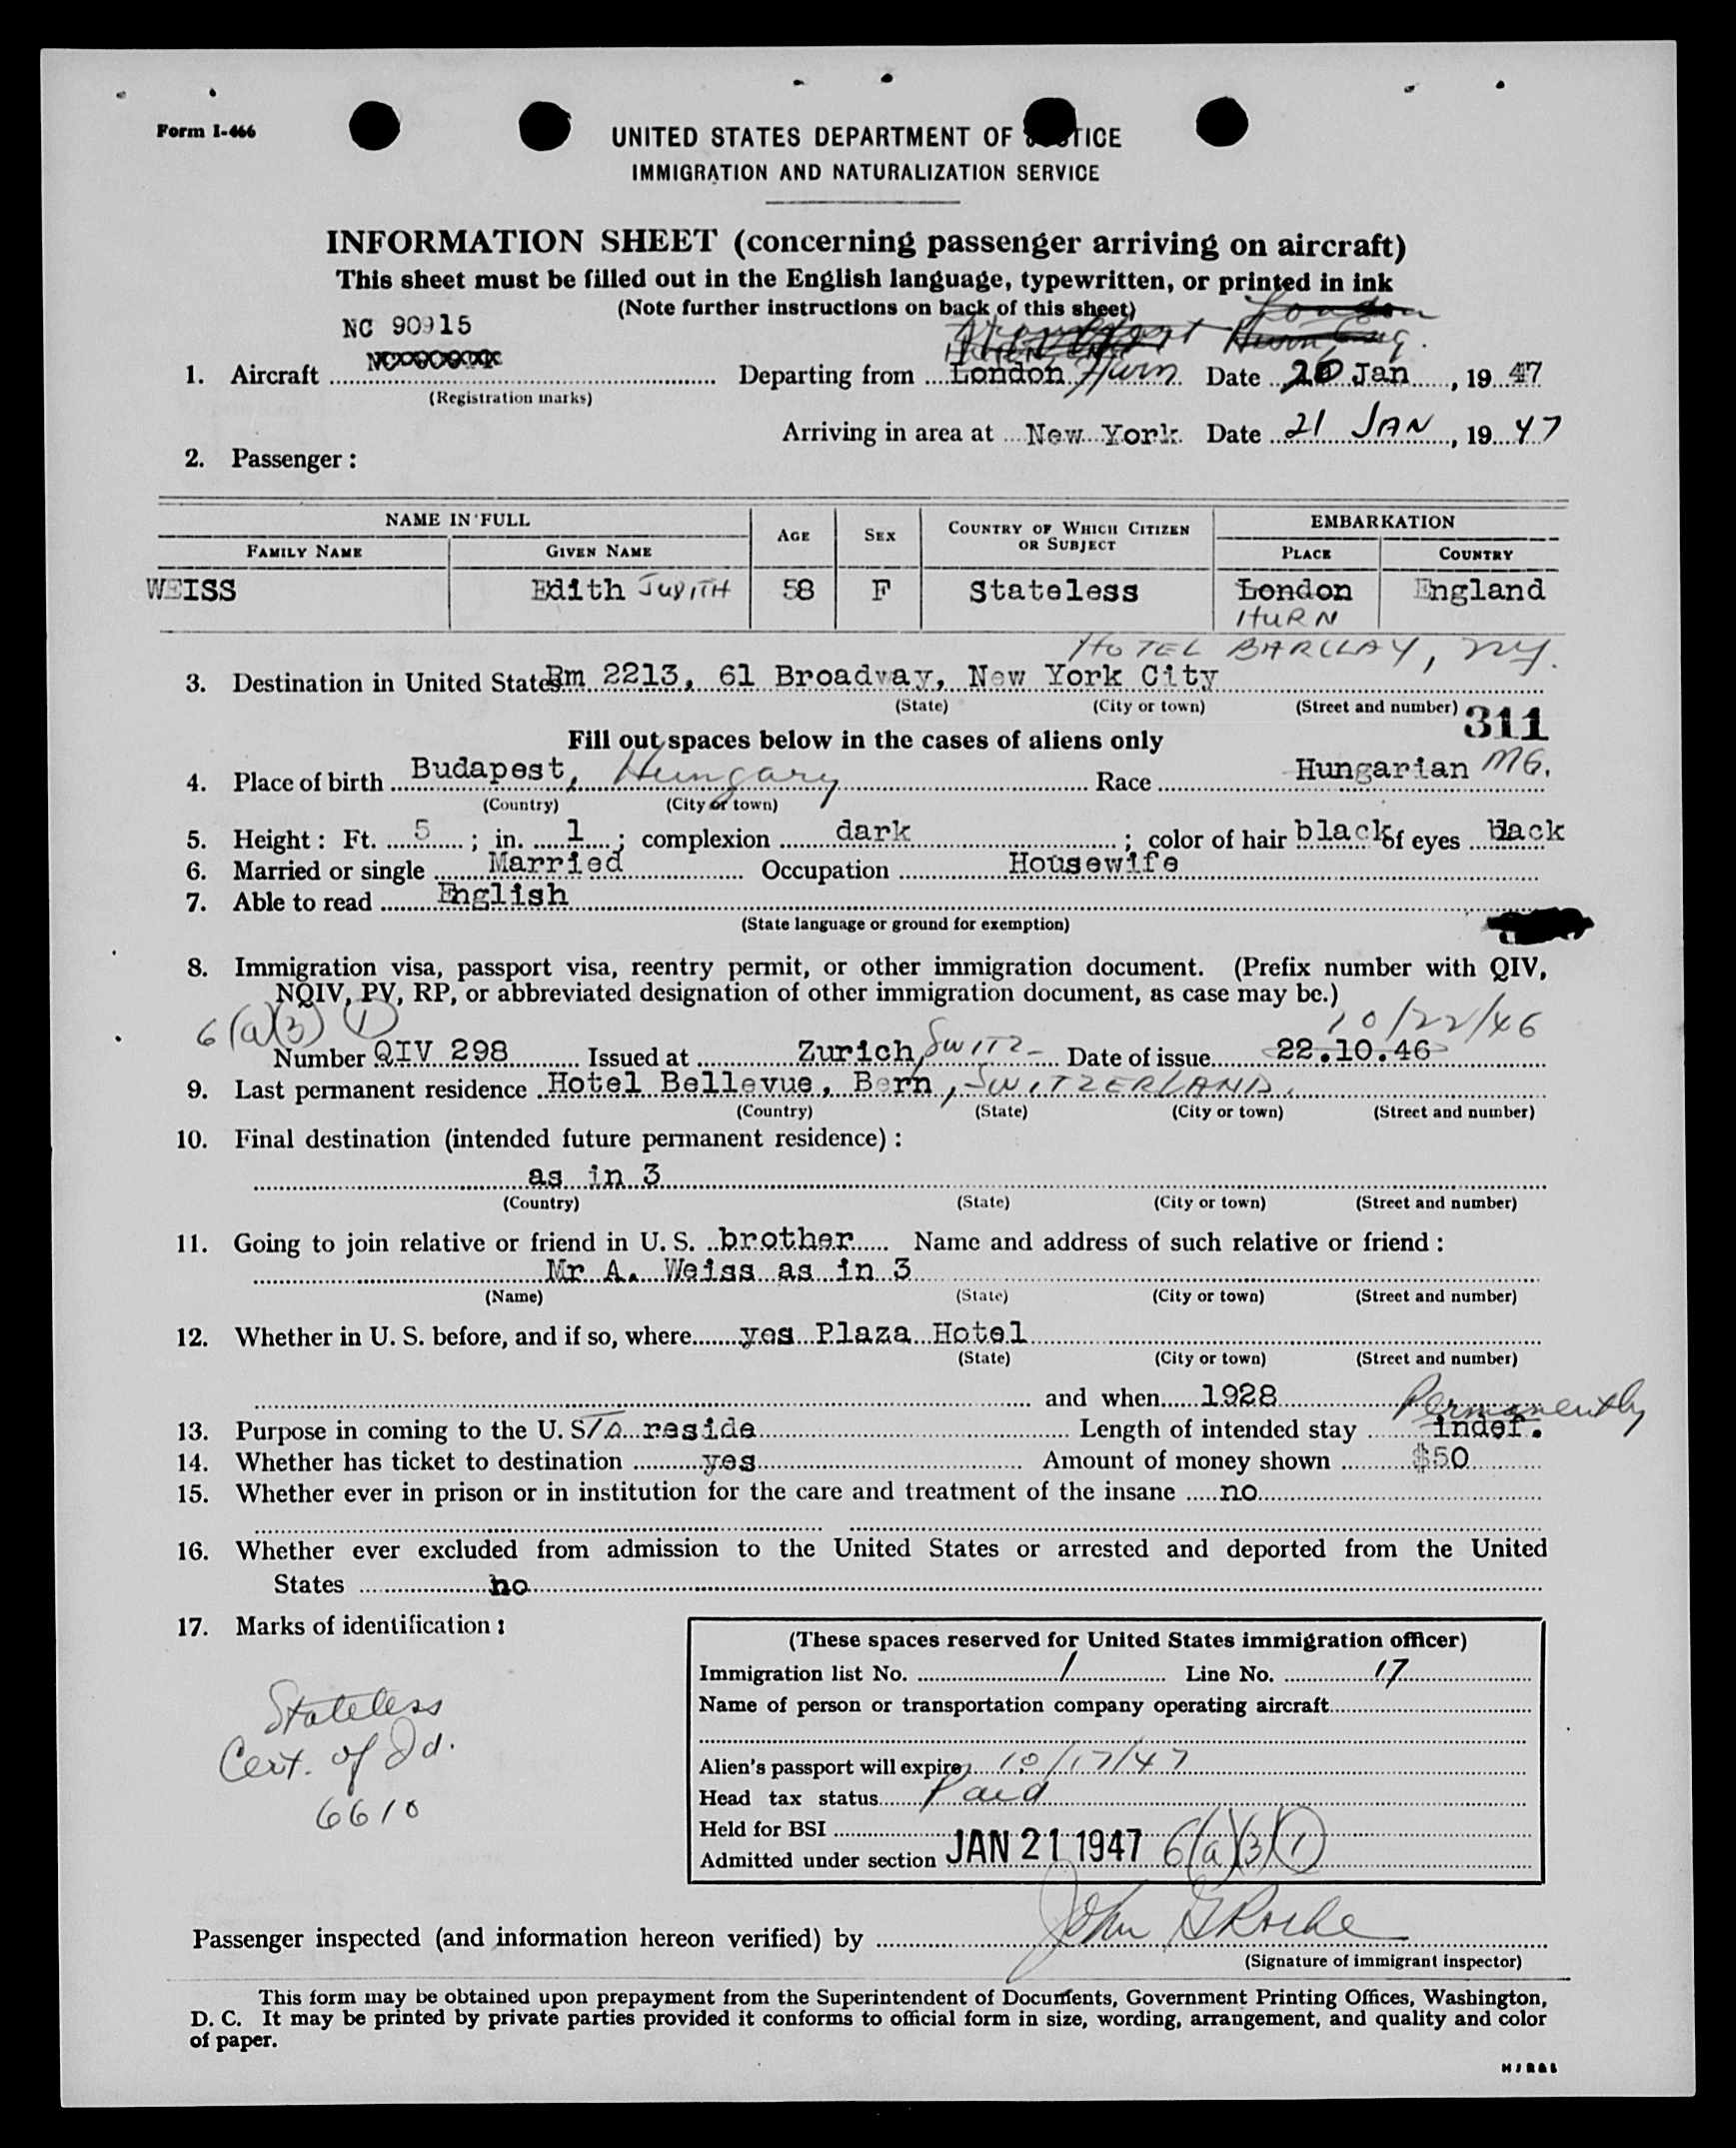 Form I-466
UNITED STATES DEPARTMENT OF JUSTICE
IMMIGRATION AND NATURALIZATION SERVICE
INFORMATION SHEET (concerning passenger arriving on aircraft)
This sheet must be filled out in the English language, typewritten, or printed in ink
(Note further instructions on back of this sheet)
London
NC 90915
1. Aircraft
Departing from London Hurn Date 20 Jan, 19 47
(Registration marks)
Arriving in area at New York Date 21 JAN, 19 47
2. Passenger:
NAME IN FULL AGE SEX COUNTRY OF WHICH CITIZEN OR SUBJECT EMBARKATION
FAMILY NAME GIVEN NAME PLACE COUNTRY
WEISS Edith JUDITH 58 F Stateless London England
HURN
HOTEL BARCLAY, NY.
3. Destination in United States Rm 2213, 61 Broadway, New York City
(State) (City or town) (Street and number)
311
Fill out spaces below in the cases of aliens only
4. Place of birth Budapest, Hungary Race Hungarian MG.
(Country) (City or town)
5. Height: Ft. 5; in. 1; complexion dark; color of hair black of eyes black
6. Married or single Married Occupation Housewife
7. Able to read English
(State language or ground for exemption)
8. Immigration visa, passport visa, reentry permit, or other immigration document. (Prefix number with QIV,
NQIV, PV, RP, or abbreviated designation of other immigration document, as case may be.)
6(a)(3) (1) 10/22/46
Number QIV 298 Issued at Zurich, SWITZ- Date of issue 22.10.46
9. Last permanent residence Hotel Bellevue, Bern, SWITZERLAND.
(Country) (State) (City or town) (Street and number)
10. Final destination (intended future permanent residence):
as in 3
(Country) (State) (City or town) (Street and number)
11. Going to join relative or friend in U. S. brother Name and address of such relative or friend:
Mr A. Weiss as in 3
(Name) (State) (City or town) (Street and number)
12. Whether in U. S. before, and if so, where yes Plaza Hotel
(State) (City or town) (Street and number)
and when 1928
Permanently
13. Purpose in coming to the U. S. To reside Length of intended stay indef.
14. Whether has ticket to destination yes Amount of money shown $50
15. Whether ever in prison or in institution for the care and treatment of the insane no
16. Whether ever excluded from admission to the United States or arrested and deported from the United
States no
17. Marks of identification:
Stateless
Cert. of Id.
6610
(These spaces reserved for United States immigration officer)
Immigration list No. 1 Line No. 17
Name of person or transportation company operating aircraft
Alien's passport will expire 10/17/47
Head tax status Paid
Held for BSI
Admitted under section JAN 21 1947 6(a)(3)(1)
Passenger inspected (and information hereon verified) by John G Roche
(Signature of immigrant inspector)
This form may be obtained upon prepayment from the Superintendent of Documents, Government Printing Offices, Washington,
D. C. It may be printed by private parties provided it conforms to official form in size, wording, arrangement, and quality and color
of paper.